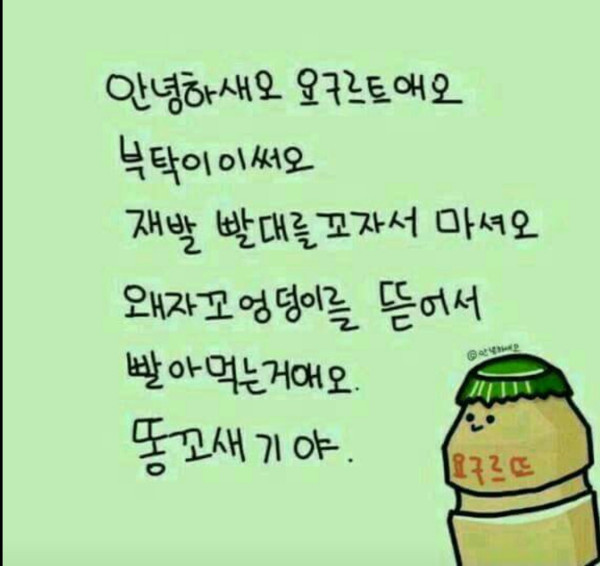 안녕하새오 요구르트애오
부탁이이써오
재발 빨대를꼬자서 마셔오
왜자꼬엉덩이를 뜯어서
빨아먹는거애오.
똥꼬새기야.
요구르뜨